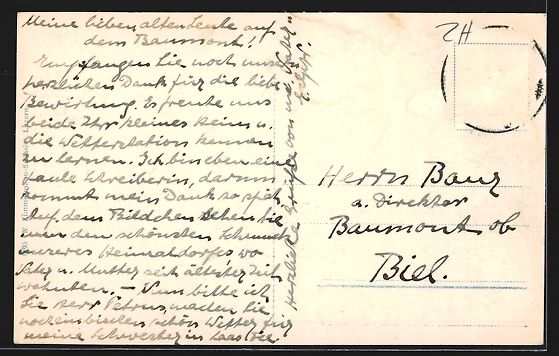 Meine lieben alten Leute auf
dem Baumont!
Empfangen Sie noch unsern
herzlichen Dank für die liebe
Bewirtung. Es freute uns
beide Ihr kleines Heim u.
die Wetterstation kennen
zu lernen. Ich bin eben eine
faule Schreiberin, darum
kommt mein Dank so spät.
Auf dem Bildchen sehen Sie
nun den schönsten Schmuck
unseres Heimatdorfes wo
Vater u. Mutter seit ältester Zeit
wohnten. – Nun bitte ich
Sie Herr Petrus, machen Sie
noch ein bisschen schön Wetter für
meine Schwester in
Herzliche Grüsse von
Herrn Banz
a. Direktor
Baumont ob
Biel.